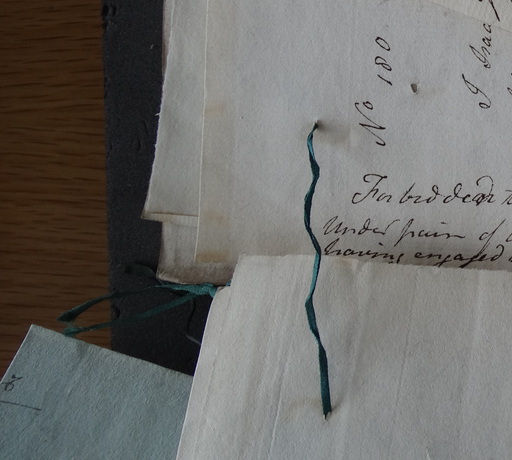 No 180
I Isaa
Forbidden t
Under pain of
having engaged